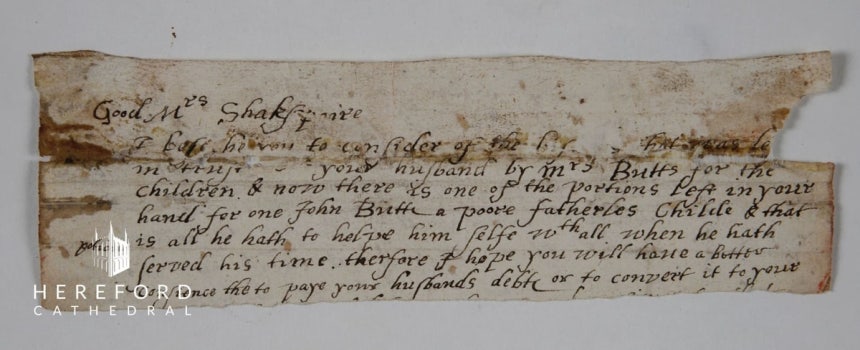 Good Mrs Shakspaire
I bese he you to consider of the that was le
in trust your husband by mrs Butts for the
children & now there is one of the portions left in your
hand for one John Butte a poore fatherles Childe & that
is all he hath to helpe him selfe wth all when he hath
served his time therfore I hope you will have a better
the to paye your husbands debte or to convert it to your
HEREFORD
CATHEDRAL